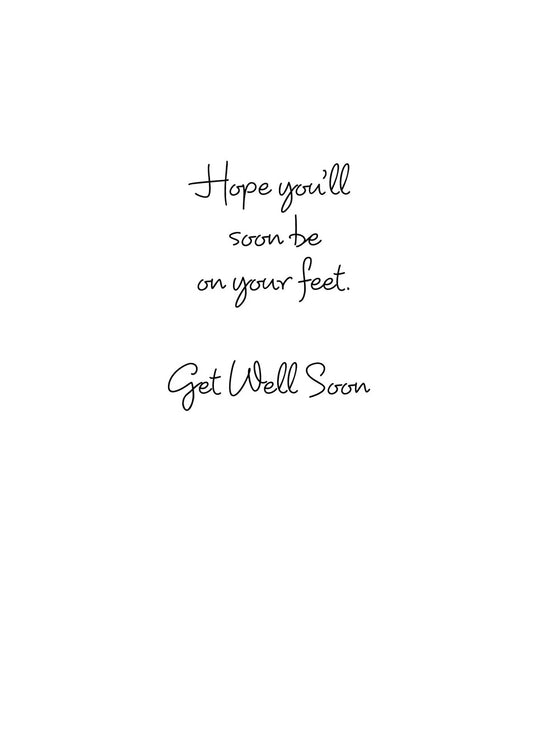 Hope you'll
soon be
on your feet.
Get Well Soon